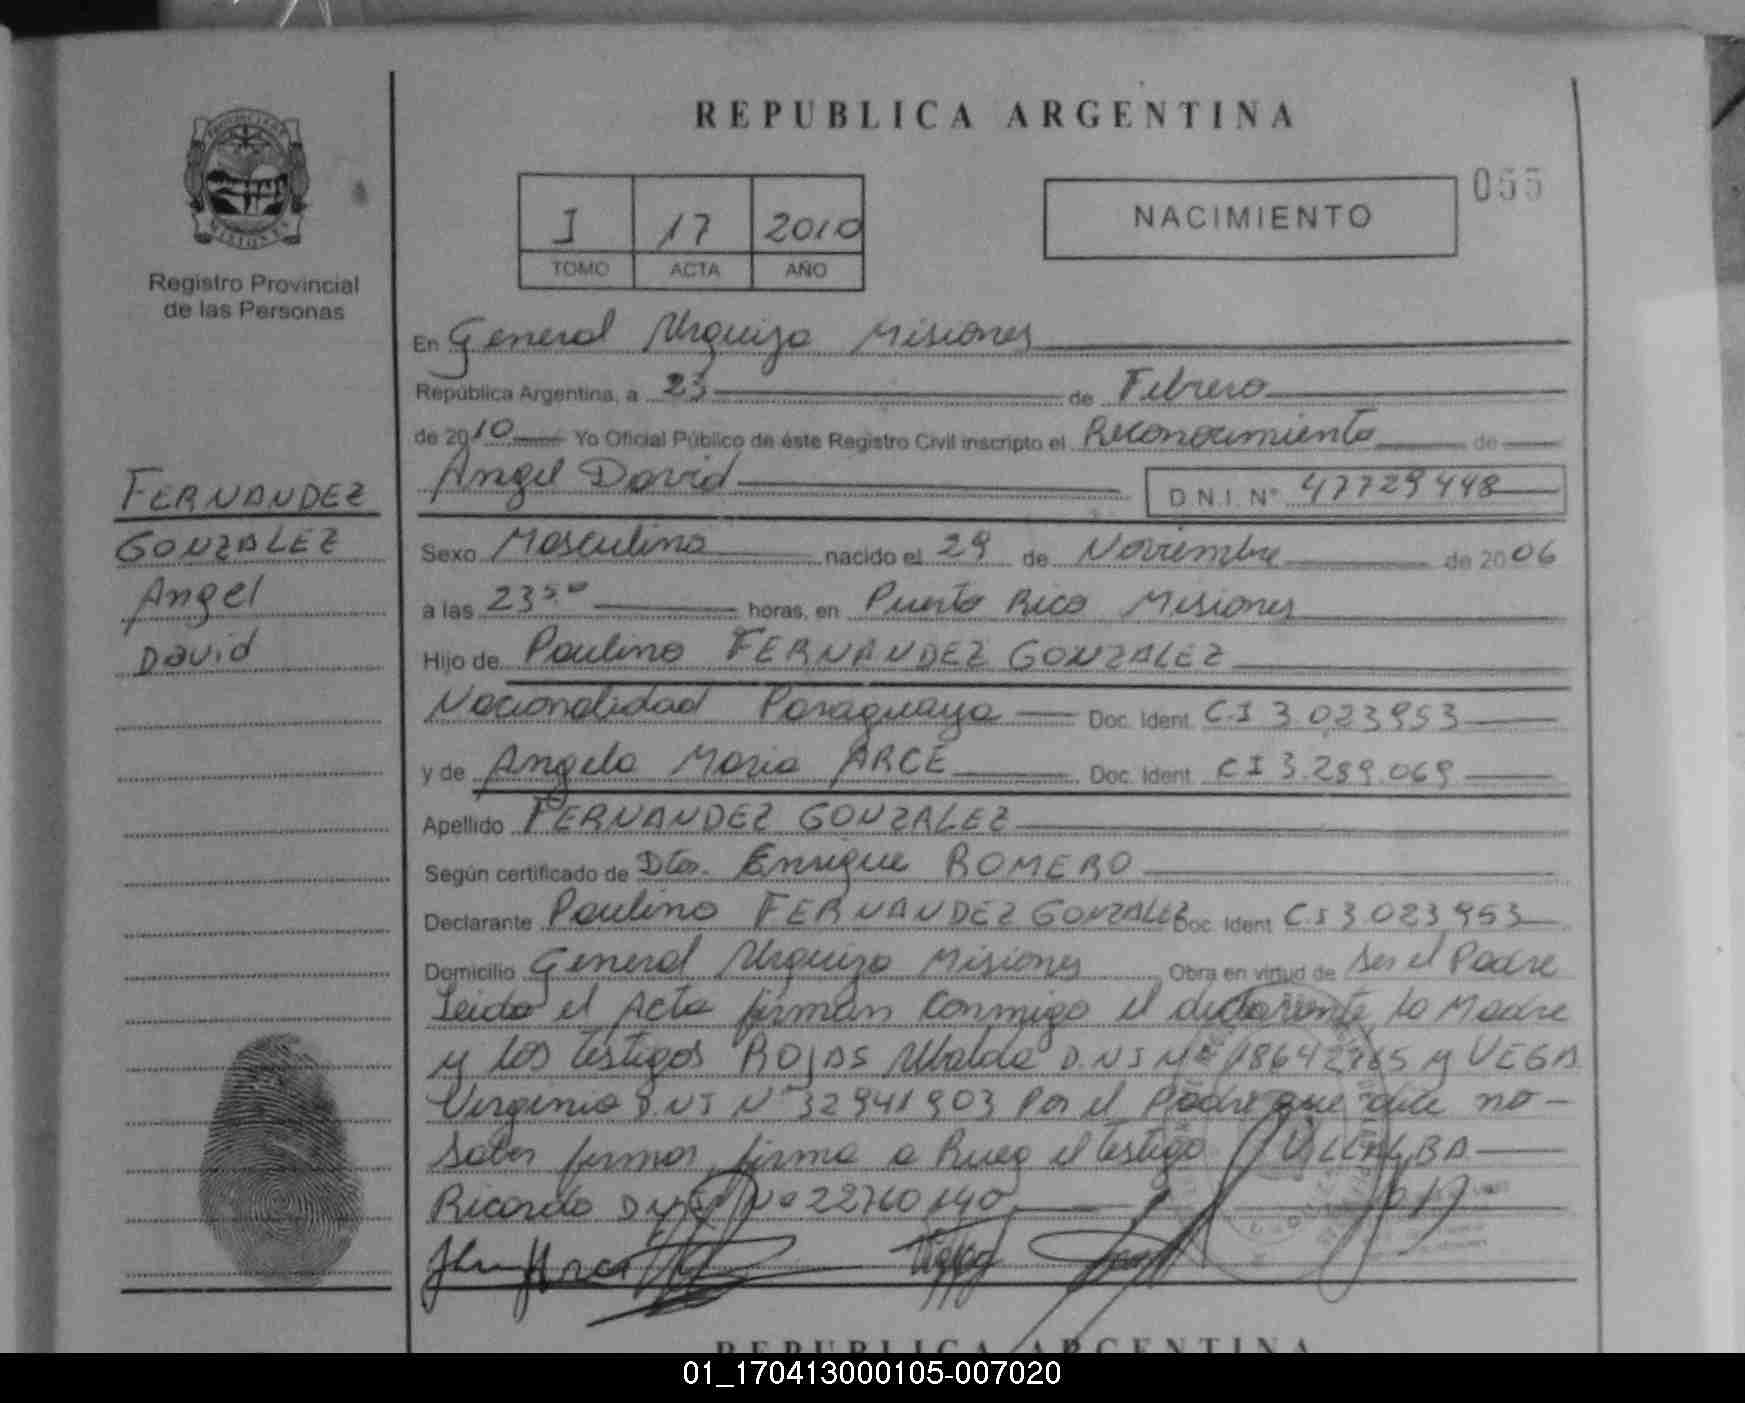 REPUBLICA ARGENTINA
055
I 17 2010
TOMO ACTA AÑO
NACIMIENTO
MISIONES
Registro Provincial
de las Personas
FERNANDEZ
GONZALEZ
Angel
David
En General Urquiza Misiones
República Argentina, a 23 de Febrero
de 2010 Yo Oficial Público de éste Registro Civil inscripto el Reconocimiento de
Angel David D.N.I. N° 47729448
Sexo Masculino nacido el 29 de Noviembre de 2006
a las 23:50 horas, en Puerto Rico Misiones
Hijo de Paulino FERNANDEZ GONZALEZ
Nacionalidad Paraguaya Doc. Ident. C.I 3.023.953
y de Angela Maria ARCE Doc. Ident. CI 3.289.069
Apellido FERNANDEZ GONZALEZ
Según certificado de Dtor. Enrique ROMERO
Declarante Paulino FERNANDEZ GONZALEZ Doc. Ident. C.I 3.023.953
Domicilio General Urquiza Misiones Obra en virtud de Ser el Padre
Leida el Acta firman Conmigo el declarante la Madre
y los testigos ROJAS Ubalda D.N.I N° y VEGA
Virginia D.N.I N° 32941903 Por el Padre que dice no
Saber firmar firma a Rueg el testigo VILLALBA
Ricardo D.N.I N° 22760140
REPUBLICA ARGENTINA
01_170413000105-007020